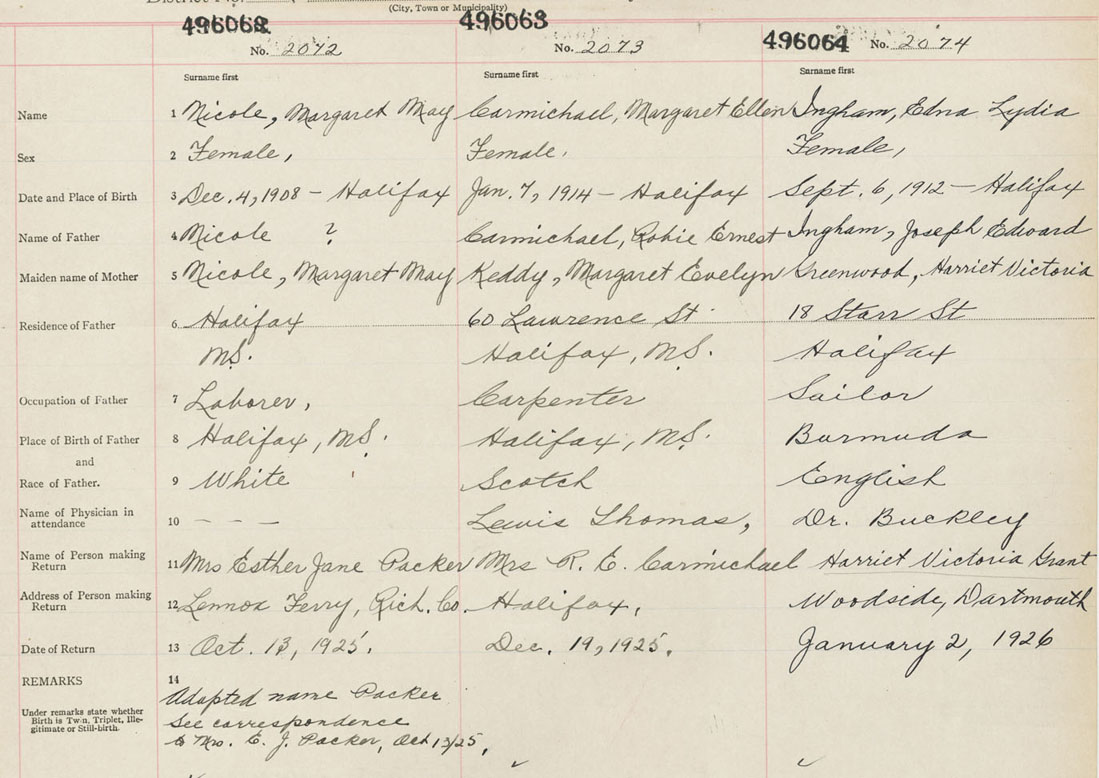 District No.
(City, Town or Municipality)
496062 496063 496064
No. 2072 No. 2073 No. 2074
Surname first Surname first Surname first
Name 1 Nicole, Margaret May Carmichael, Margaret Ellen Ingham, Edna Lydia
Sex 2 Female, Female. Female,
Date and Place of Birth 3 Dec. 4, 1908 - Halifax Jan. 7, 1914 - Halifax Sept. 6, 1912 - Halifax
Name of Father 4 Nicole ? Carmichael, Robie Ernest Ingham, Joseph Edward
Maiden name of Mother 5 Nicole, Margaret May Keddy, Margaret Evelyn Greenwood, Harriet Victoria
Residence of Father 6 Halifax 60 Lawrence St. 18 Starr St
N.S. Halifax, N.S. Halifax
Occupation of Father 7 Laborer, Carpenter Sailor
Place of Birth of Father 8 Halifax, N.S. Halifax, N.S. Bermuda
and
Race of Father. 9 White Scotch English
Name of Physician in attendance 10 - - - Lewis Thomas, Dr. Buckley
Name of Person making Return 11 Mrs Esther Jane Packer Mrs R. E. Carmichael Harriet Victoria Grant
Address of Person making Return 12 Lennox Ferry, Rich. Co. Halifax, Woodside, Dartmouth
Date of Return 13 Oct. 13, 1925. Dec. 19, 1925. January 2, 1926
REMARKS 14
Under remarks state whether Birth is Twin, Triplet, Illegitimate or Still-birth.
Adopted name Packer
See correspondence
to Mrs. E. J. Packer, Oct 13/25,